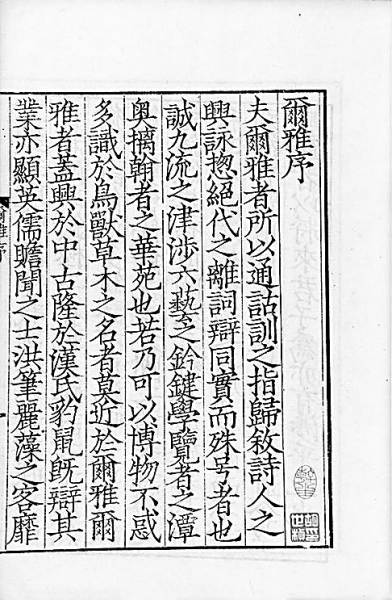 爾雅序
夫爾雅者所以通詁訓之指歸敘詩人之
興詠揔絕代之離詞辯同實而殊号者也
誠九流之津涉六藝之鈐鍵學覽者之潭
奧摛翰者之華苑也若乃可以博物不惑
多識於鳥獸草木之名者莫近於爾雅爾
雅者蓋興於中古隆於漢氏豹鼠既辯其
業亦顯英儒贍聞之士洪筆麗藻之客靡